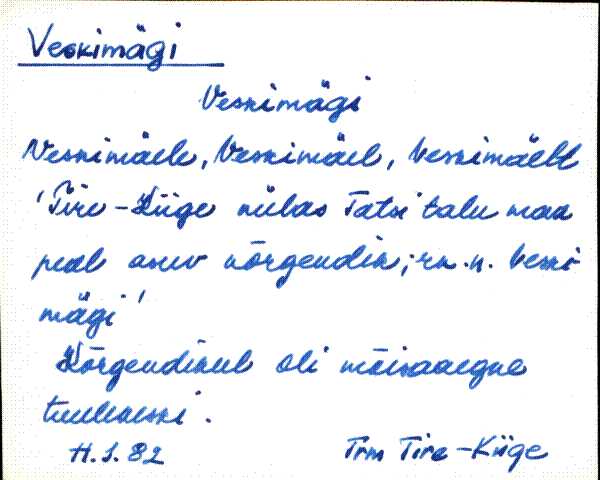 Veskimägi
Veskimägi
Veskimäele, Veskimäel, Veskimäelt
'Tire-Kiige külas Tatsi talu maa
peal asuv kõrgendik; rn. n. veski-
mägi'
Kõrgendikul oli mõisaaegne
tuuleveski.
H. J. 82 Trm Tire-Kiige